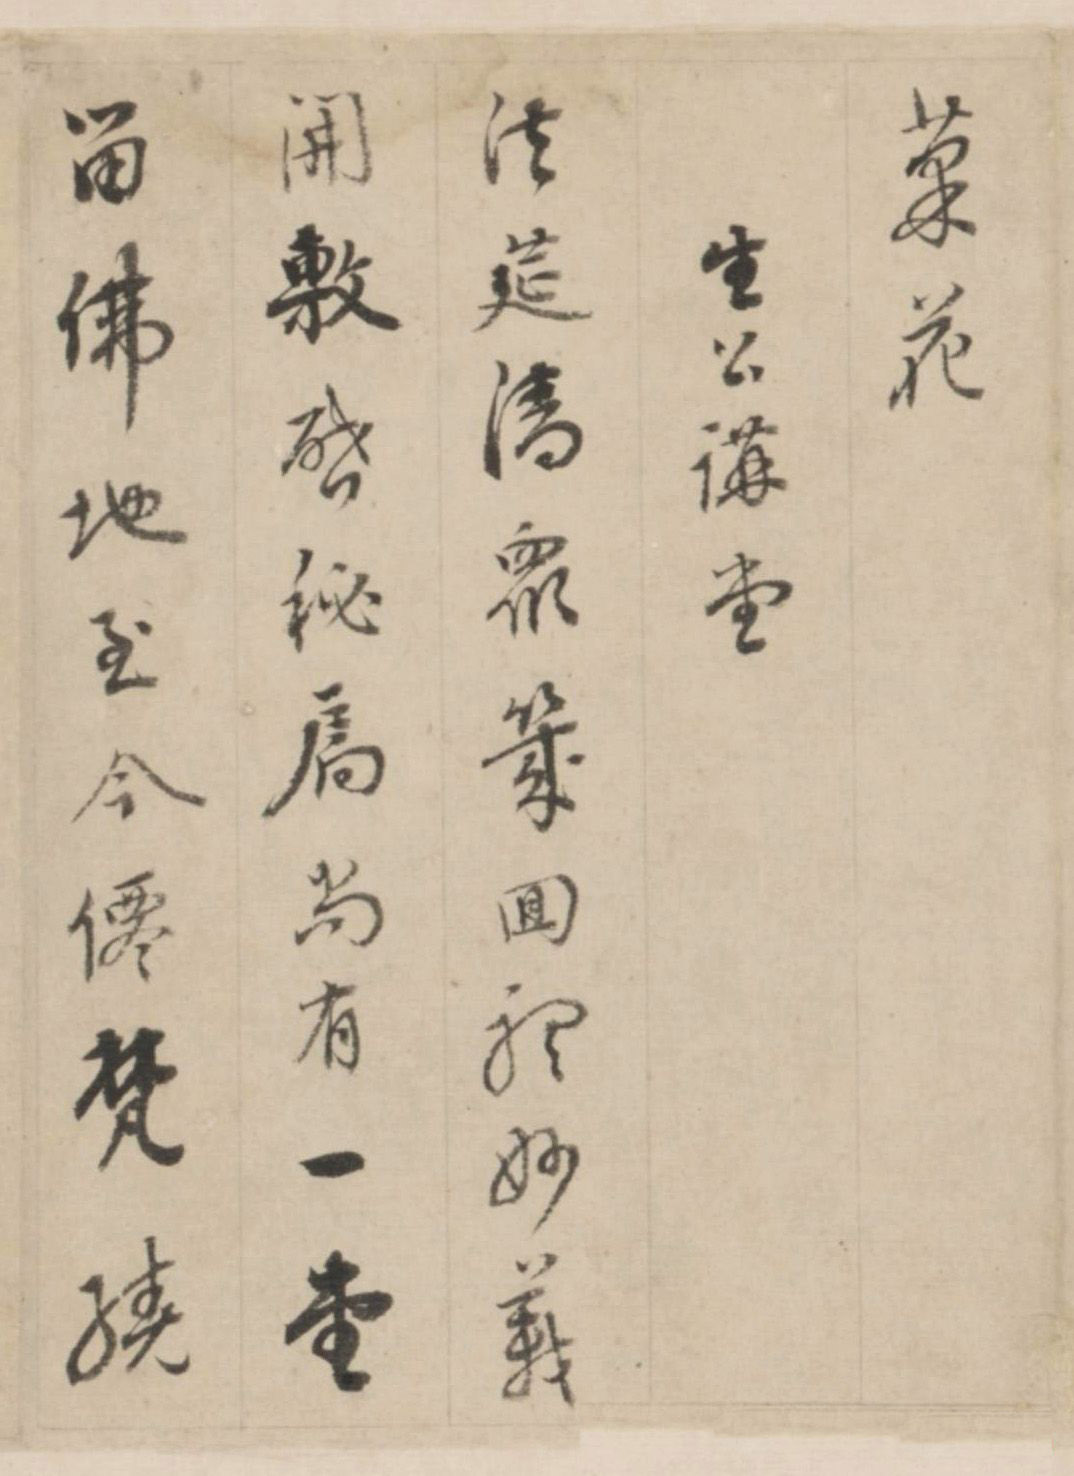 菜花
生公講堂
法筵清眾幾圓聽妙義
開敷啓秘扃尚有一堂
留佛地至今僊梵繞